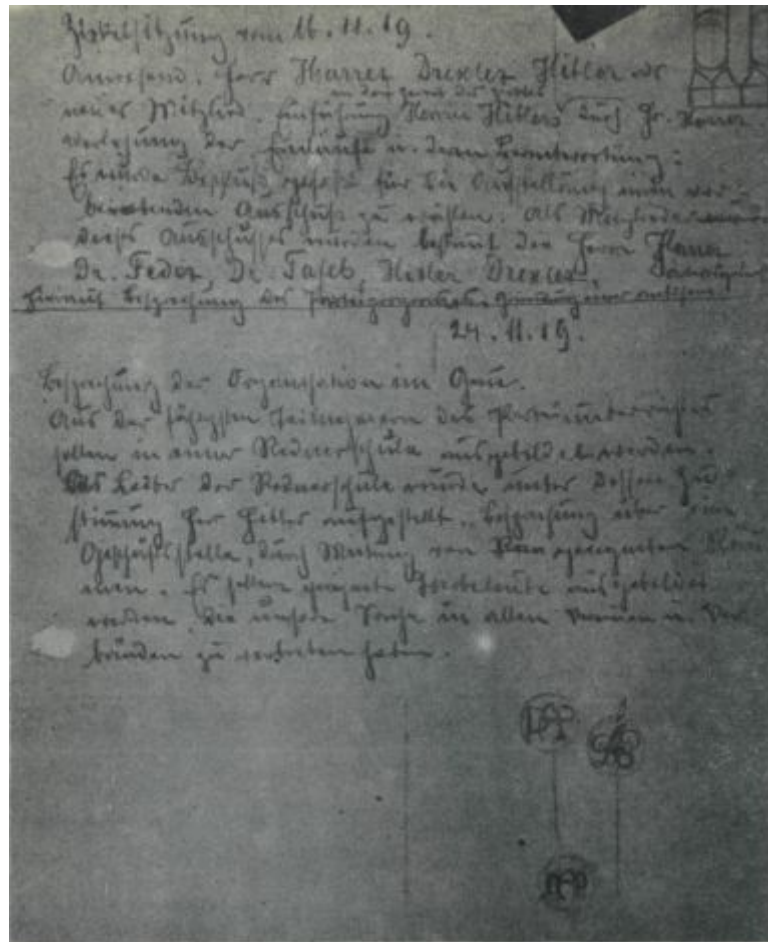 Zirkelsitzung vom 16.11.19.
Anwesend. Herr Harrer Drexler Hitler als
in den Geist des Zirkels
neues Mitglied. Einführung Herrn Hitlers durch Hr. Harrer
Verlesung der Einläufe u. deren Beantwortung:
Es wurde Beschluß gefaßt für die Aufstellung einen vor-
beratenden Ausschuß zu wählen. Als Mitglieder
dieses Ausschusses wurden bestimt die Herrn Harrer
Dr. Feder, Dr. Tafel, Hitler Drexler,
Hierauf Besprechung des Gründung einer
24.11.19.
Besprechung der Organisation im Gau.
Aus den fähigsten Teilnehmern des
sollen in einer Rednerschule ausgebildet werden.
Als Leiter der Rednerschule wurde unter dessen Zu-
stimung Herr Hitler aufgestellt. Besprechung über eine
Geschäftsstelle, durch Mietung von geeigneten Räu
men. Es sollen geeignete Werbeleute ausgebildet
werden die unsere Sache in allen Vereinen u. Ver-
bänden zu vertreten haben.